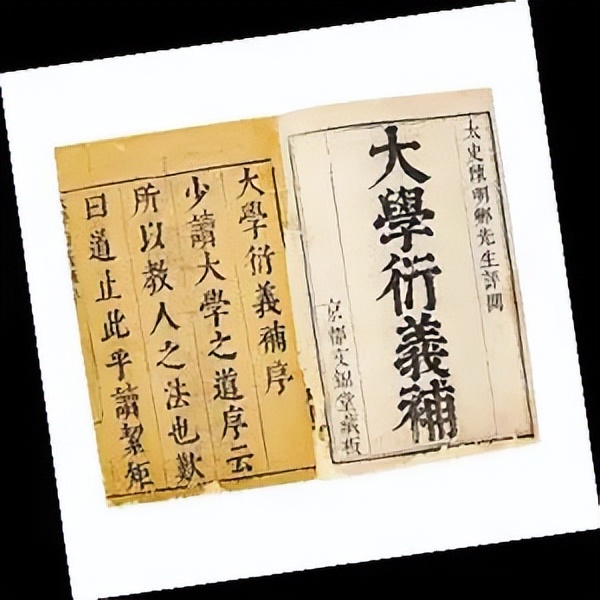 太史陳明卿先生評閱
大學衍義補
京都文錦堂藏板
大學衍義補序
少讀大學之道序云
所以教人之法也歎
曰道止此乎讀絜矩